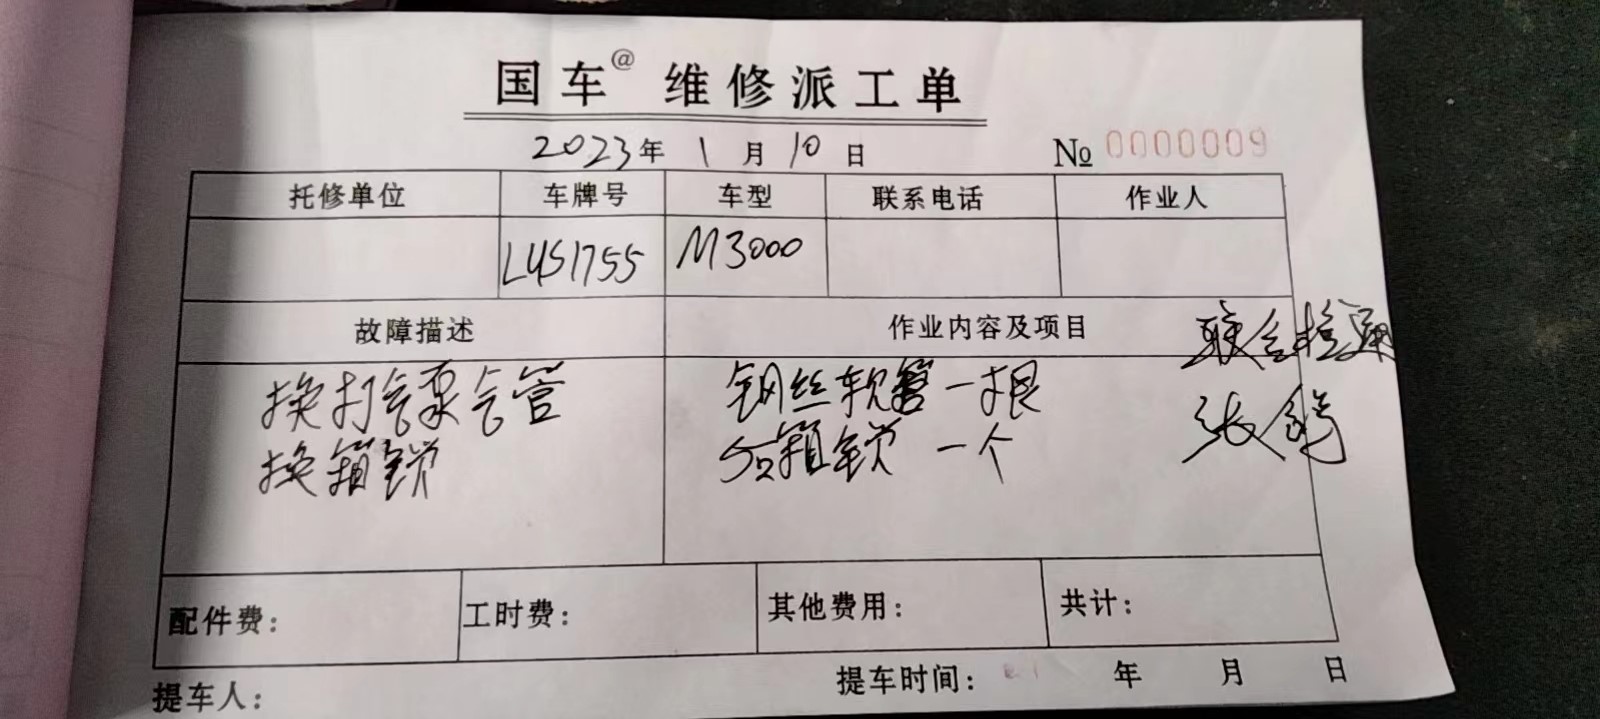 国车@ 维修派工单
2023年 1月10日 № 0000009
托修单位 车牌号 车型 联系电话 作业人
LUS1755 M3000
故障描述 作业内容及项目
换打气泵气管 钢丝软管一根
换箱锁 箱锁 一个
联合检测
张
配件费: 工时费: 其他费用: 共计:
提车人: 提车时间: 年 月 日